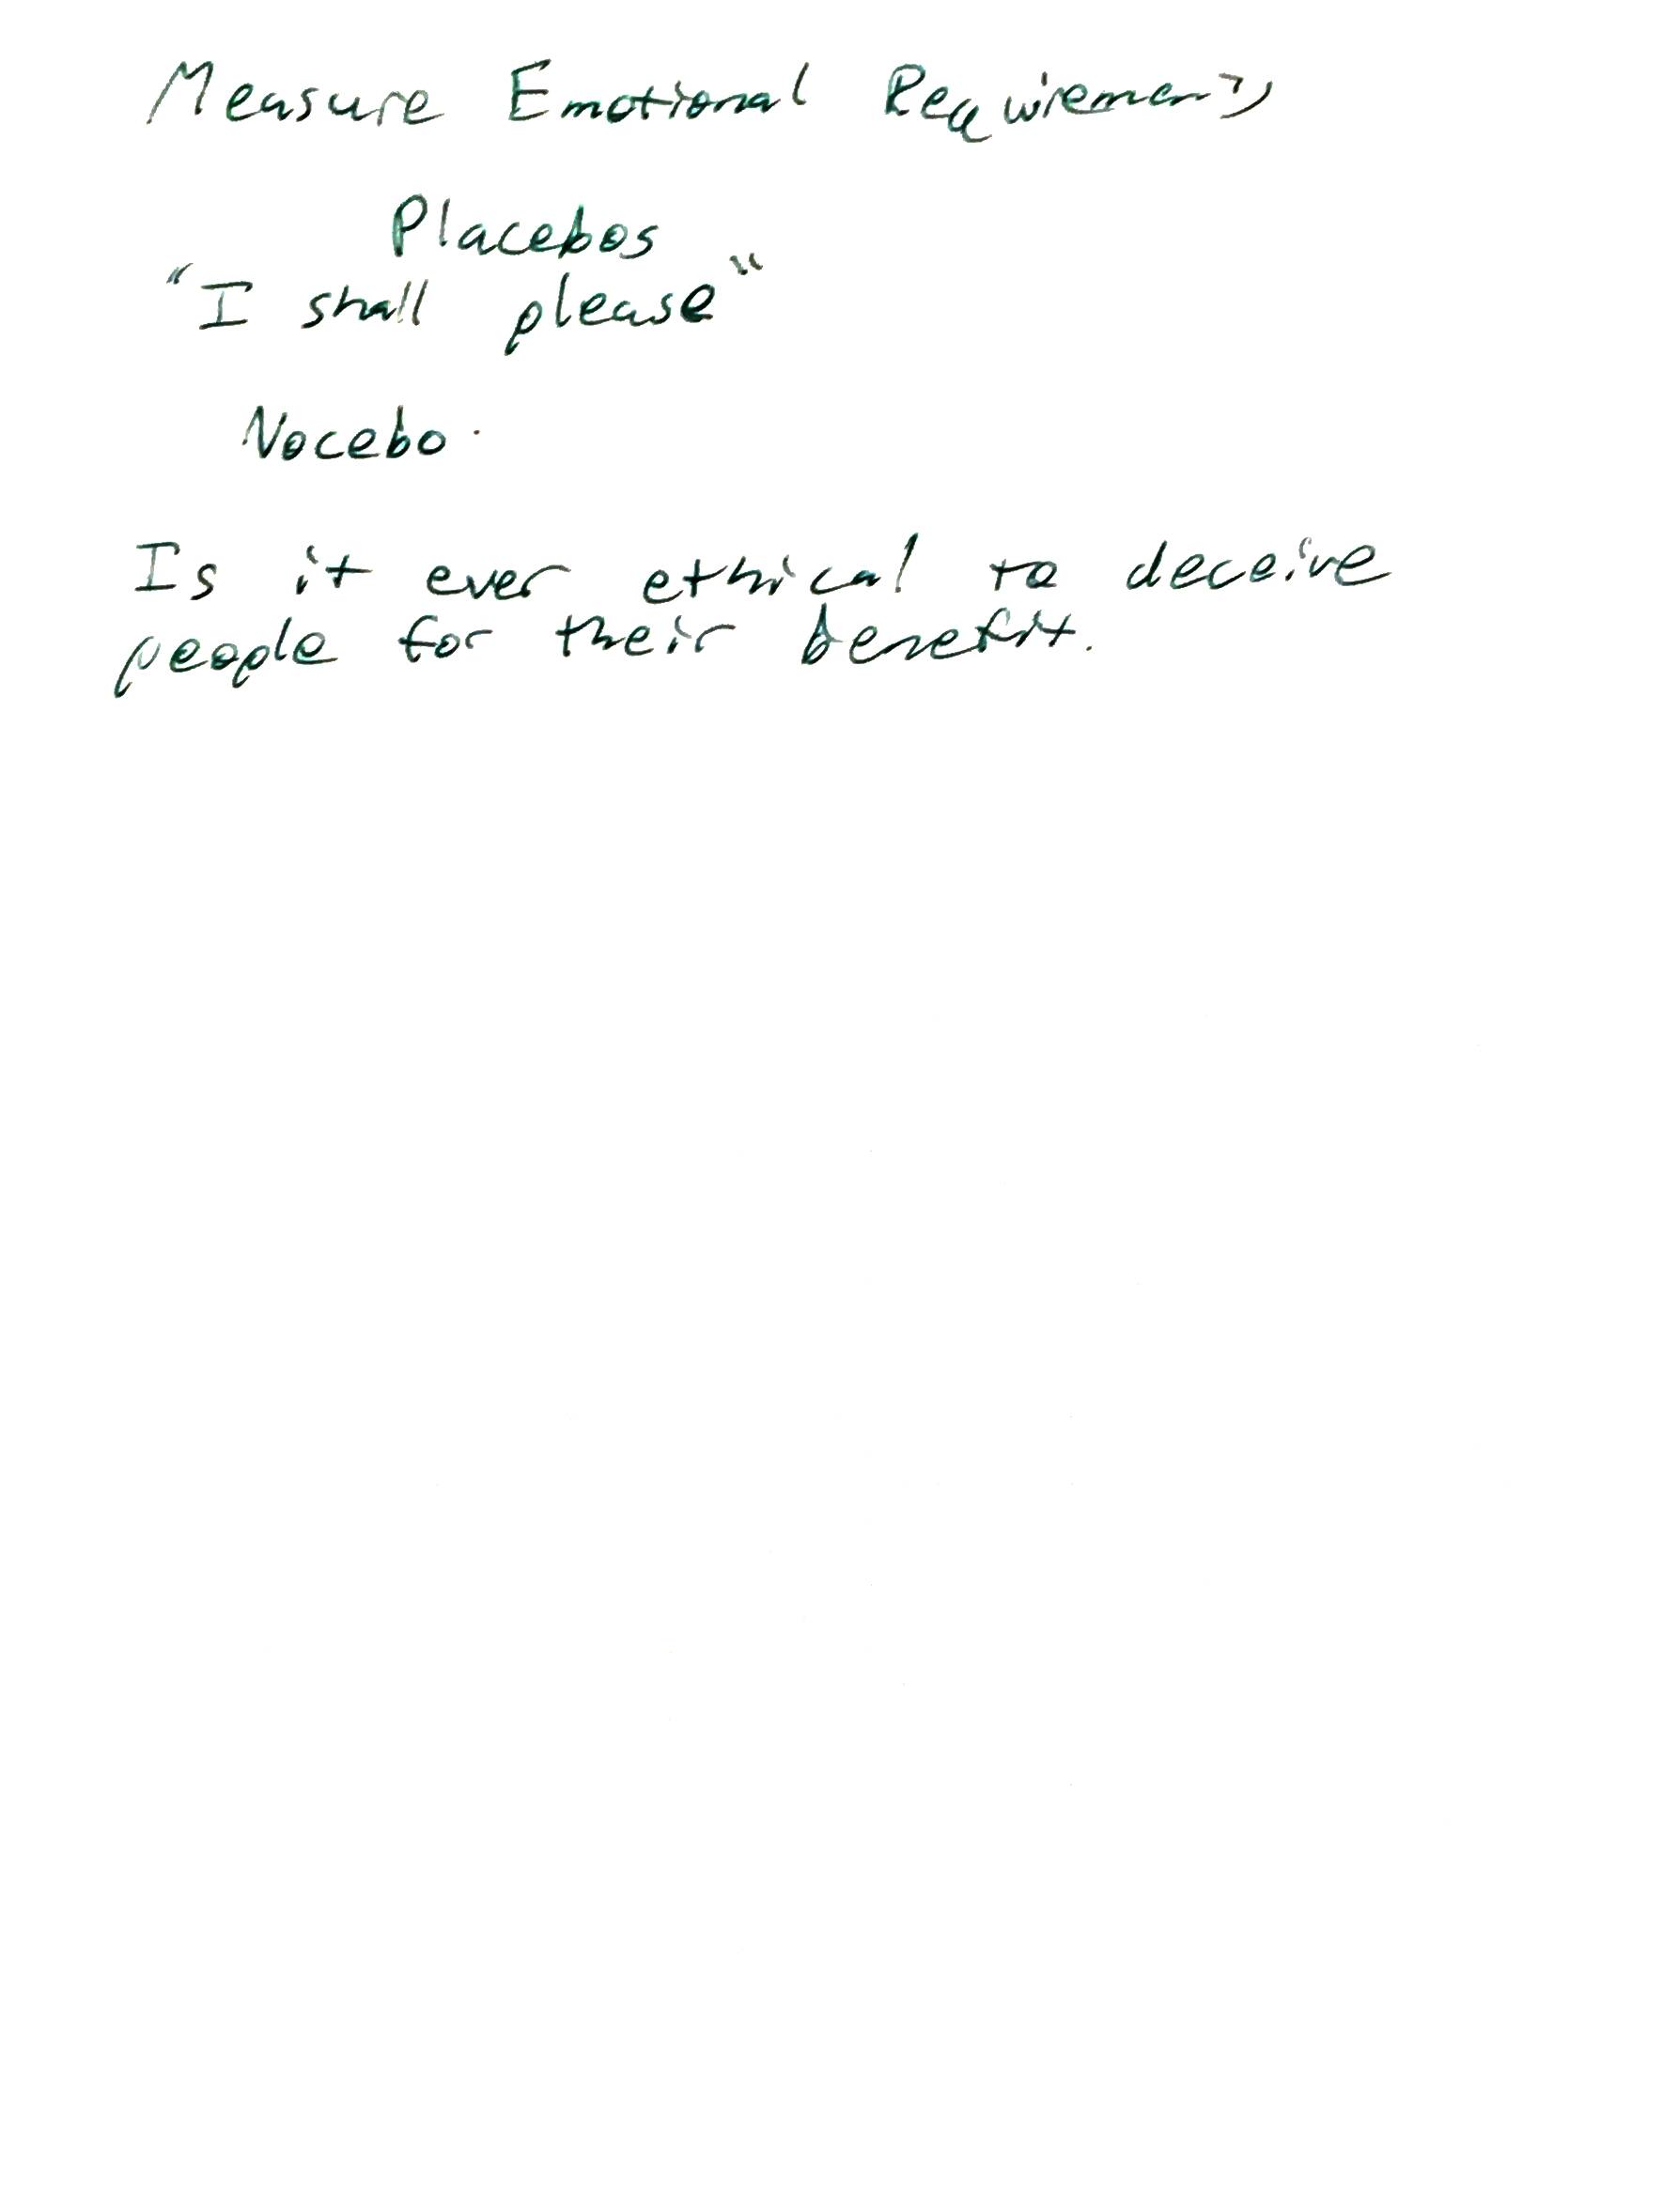 Measure Emotional Requirements
Placebos
"I shall please"
Nocebo.
Is it ever ethical to deceive
people for their benefit.